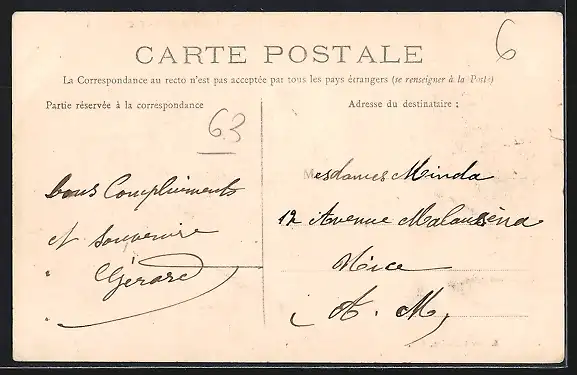 CARTE POSTALE
6
La Correspondance au recto n'est pas acceptée par tous les pays étrangers (se renseigner à la Poste)
Partie réservée à la correspondance
Adresse du destinataire ;
63
Mesdames Minda
bons Compliments
12 Avenue Malausséna
et souvenire
Nice
Gérard
(A. M)